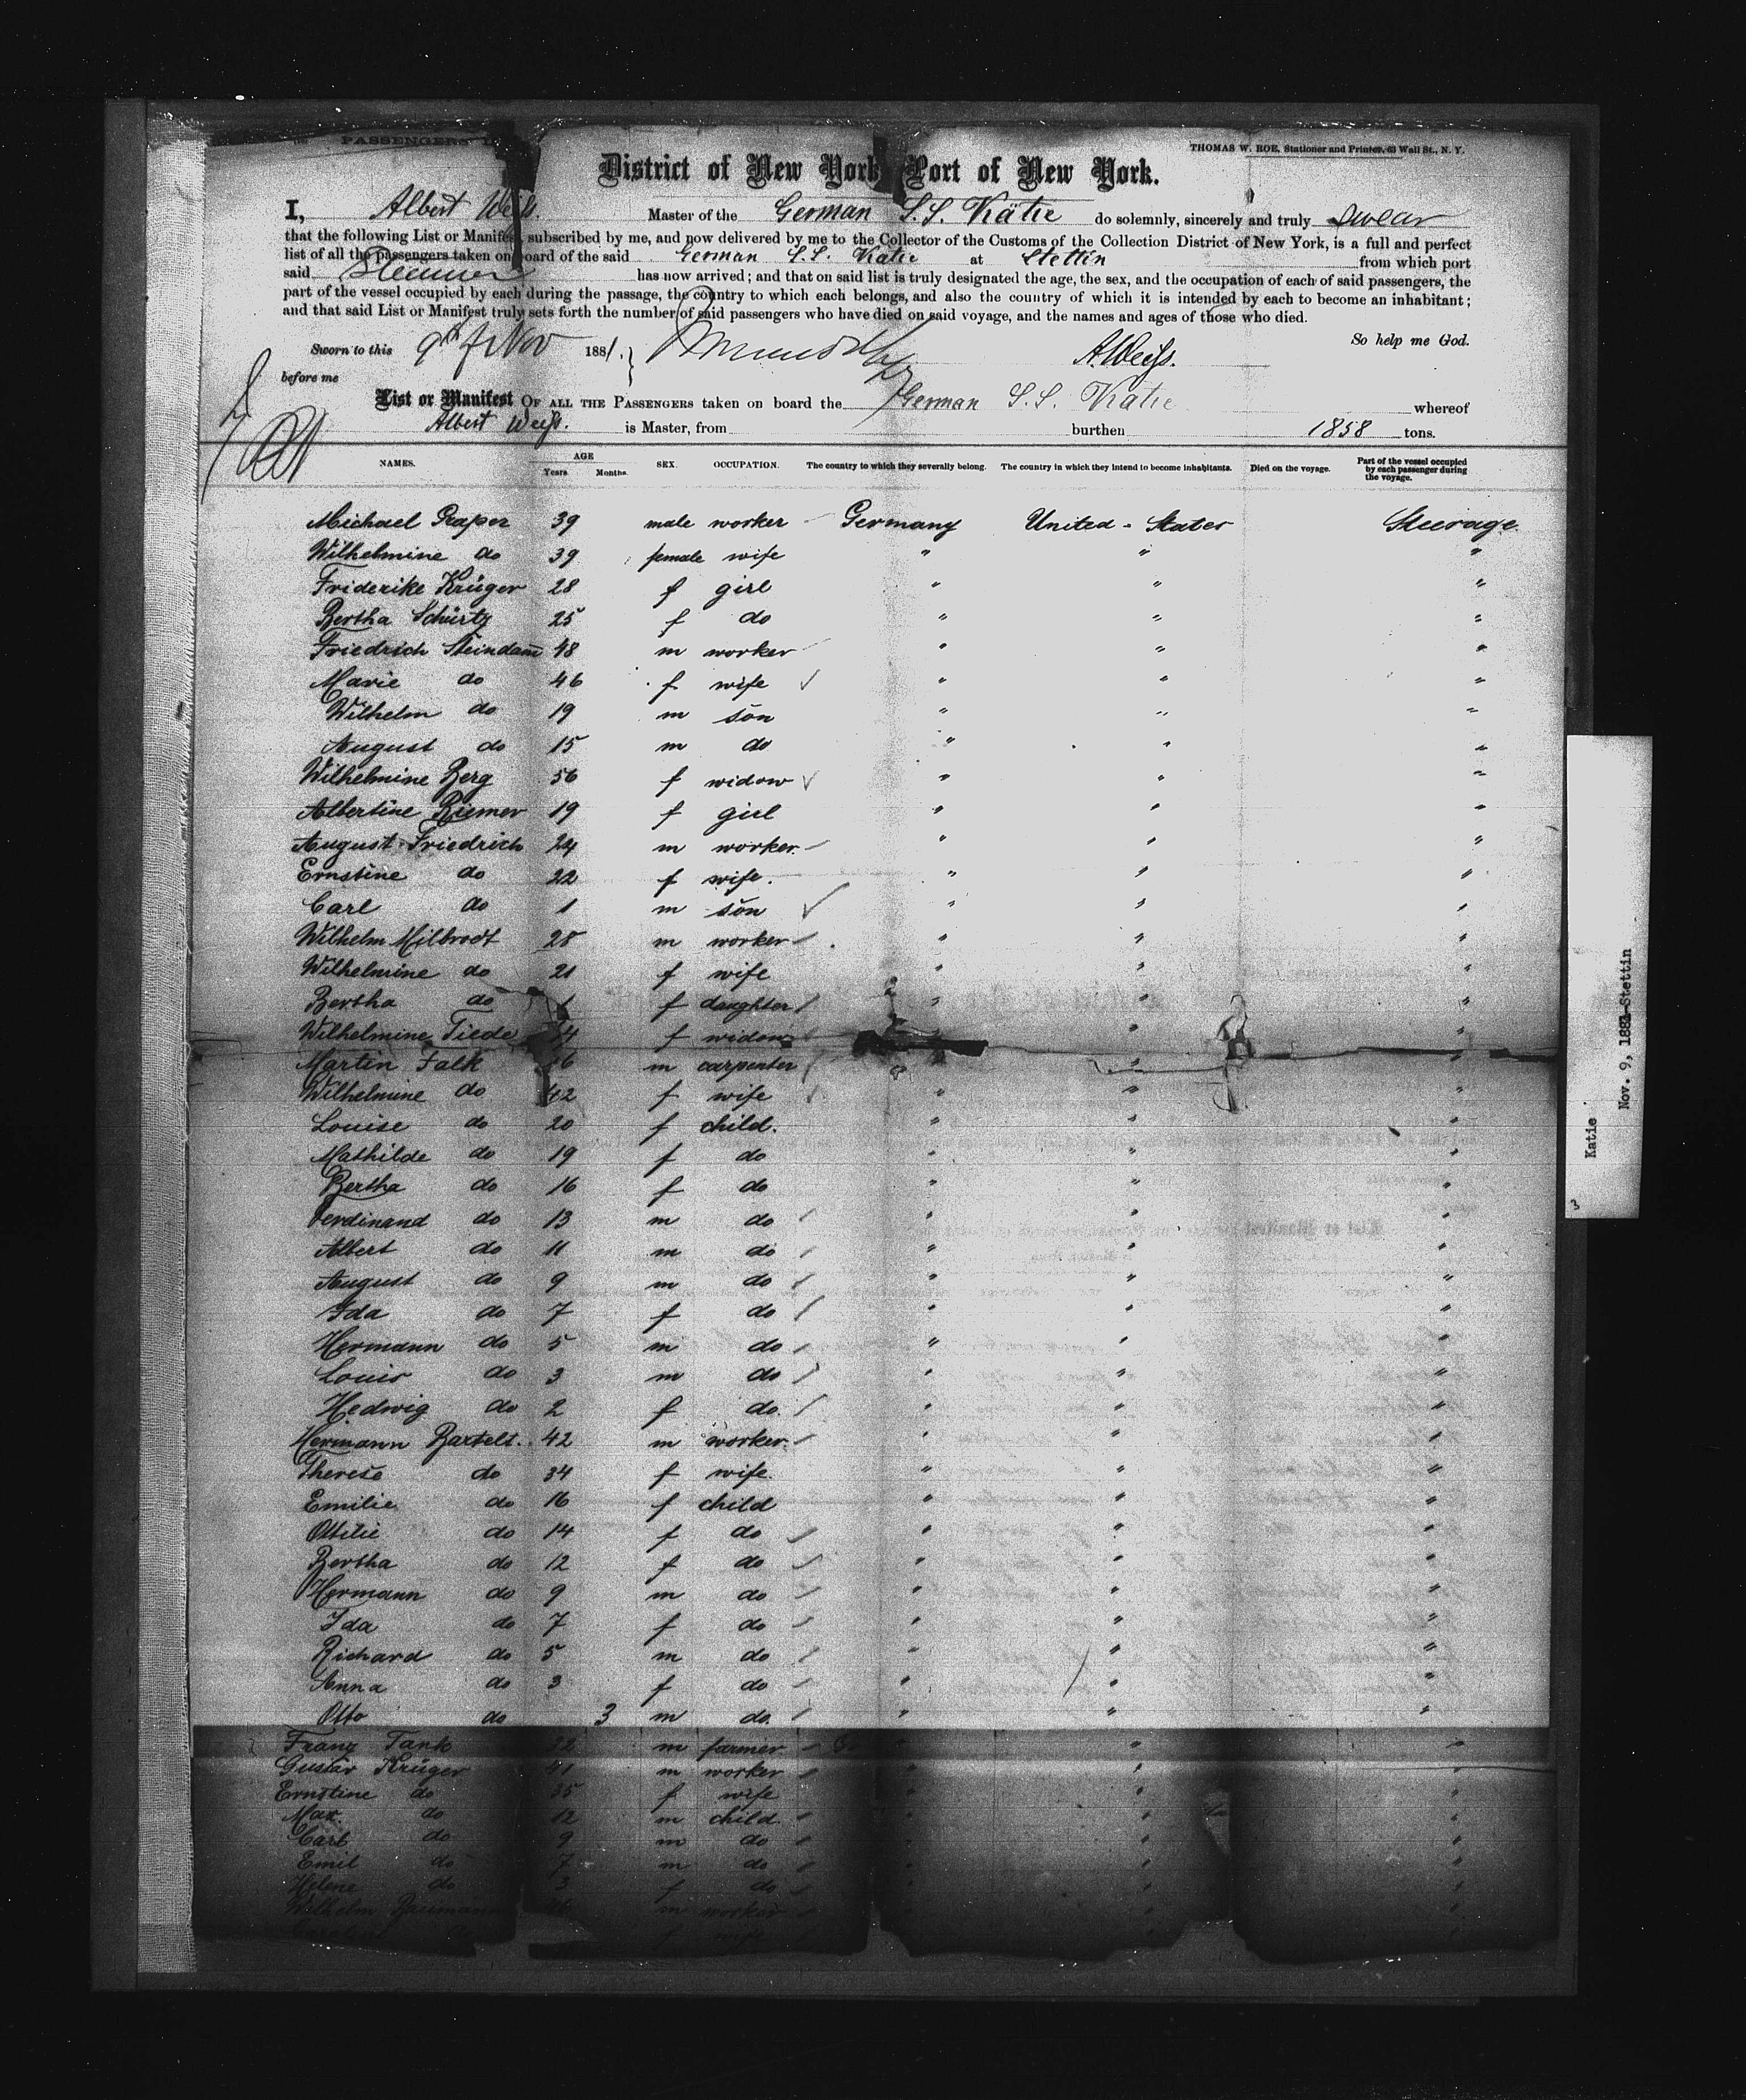 PASSENGERS
THOMAS W. ROE, Stationer and Printer, 63 Wall St., N. Y.
District of New York Port of New York.
I, Albert Weiß. Master of the German S.S. Kätie do solemnly, sincerely and truly swear
that the following List or Manifest, subscribed by me, and now delivered by me to the Collector of the Customs of the Collection District of New York, is a full and perfect
list of all the passengers taken on board of the said German S.S. Katie at Stettin from which port
said Steamer has now arrived; and that on said list is truly designated the age, the sex, and the occupation of each of said passengers, the
part of the vessel occupied by each during the passage, the country to which each belongs, and also the country of which it is intended by each to become an inhabitant;
and that said List or Manifest truly sets forth the number of said passengers who have died on said voyage, and the names and ages of those who died.
So help me God.
Sworn to this 9th of Nov 1881. A. Weiß.
before me
List or Manifest OF ALL THE PASSENGERS taken on board the German S.S. Katie whereof
Albert Weiß. is Master, from burthen 1858 tons.
NAMES. AGE Years. Months. SEX. OCCUPATION. The country to which they severally belong. The country in which they intend to become inhabitants. Died on the voyage. Part of the vessel occupied by each passenger during the voyage.
Michael Praper 39 male worker Germany United-States Steerage.
Wilhelmine do 39 female wife " " "
Friderike Krüger 28 f girl " " "
Bertha Schürtz 25 f do " " "
Friedrich Steindam 48 m worker " " "
Marie do 46 f wife " " "
Wilhelm do 19 m son " " "
August do 15 m do " " "
Wilhelmine Berg 56 f widow " " "
Albertine Riemer 19 f girl " " "
August Friedrich 24 m worker. " " "
Ernstine do 22 f wife. " " "
Carl do 1 m son " " "
Wilhelm Milbrodt 28 m worker " " "
Wilhelmine do 21 f wife " " "
Bertha do 1 f daughter " " "
Wilhelmine Tiede f widow " "
Martin Falk m carpenter " "
Wilhelmine do 42 f wife " " "
Louise do 20 f child. " " "
Mathilde do 19 f do " " "
Bertha do 16 f do " " "
Ferdinand do 13 m do " " "
Albert do 11 m do " " "
August do 9 m do " " "
Ida do 7 f do " " "
Hermann do 5 m do " " "
Louis do 3 m do " " "
Hedwig do 2 f do. " " "
Hermann Bartelt. 42 m worker. " " "
Therese do 34 f wife. " " "
Emilie do 16 f child " " "
Ottilie do 14 f do " " "
Bertha do 12 f do " " "
Hermann do 9 m do " " "
Ida do 7 f do " " "
Richard do 5 m do " " "
Anna do 3 f do " " "
Otto do 3 m do. " " "
Franz Tank 22 m farmer " " "
Gustav Krüger 41 m worker " " "
Ernstine do 35 f wife " "
Max. do 12 m child. " " "
Carl do 9 m do " " "
Emil do 7 m do " " "
Helene do 3 f do " " "
Wilhelm Baumann 26 m worker " " "
f wife
Katie
Nov. 9, 1881-Stettin
3